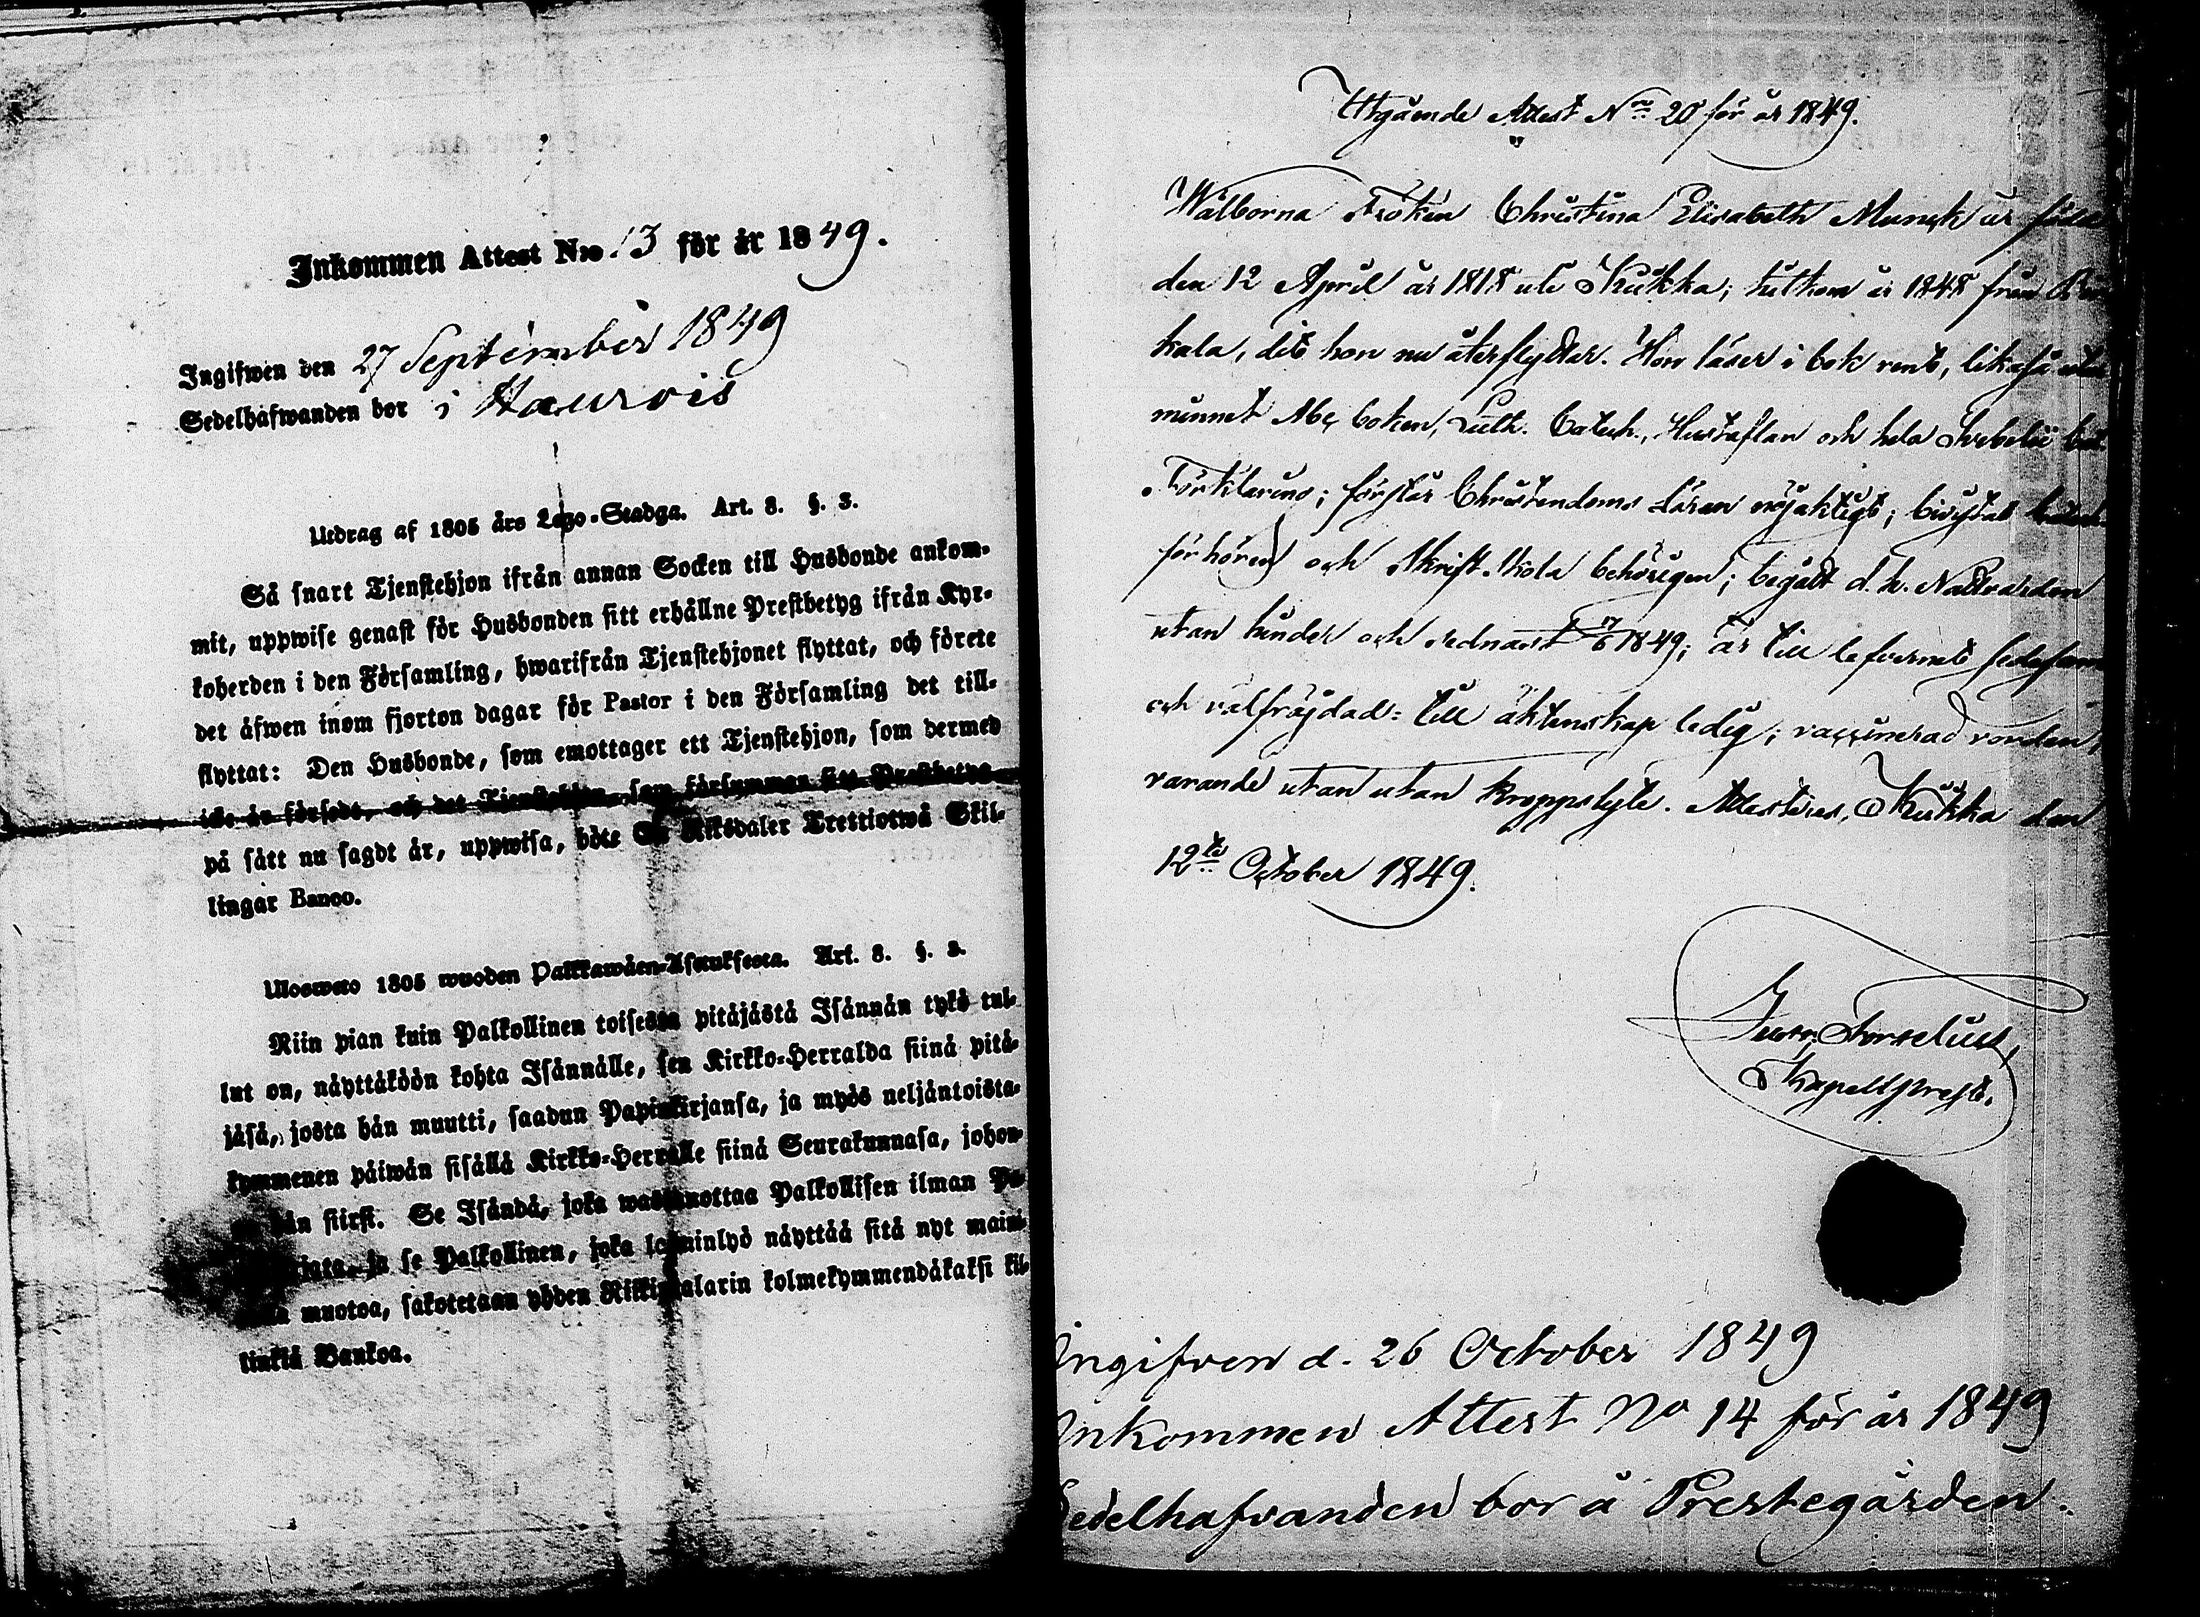 Inkommen Attest N:o 13 för år 1849.
Ingifwen den 27 September 1849
Sedelhafwanden bor i Haurois
Utdrag af 1805 års Lego-Stadga. Art. 8. §. 3.
Så snart Tjenstehjon ifrån annan Socken till Husbonde ankom-
mit, uppwise genast för Husbonden sitt erhållne Prestbetyg ifrån Kyr-
koherden i den Församling, hwarifrån Tjenstehjonet flyttat, och förete
det äfwen inom fjorton dagar för Pastor i den Församling det till-
flyttat: Den Husbonde, som emottager ett Tjenstehjon, som dermed
icke är försedt, och det Tjenstehjon, som försummar sitt Prestbetyg
på sätt nu sagdt är, uppwisa, böte En Riksdaler Trettiotwå Skil-
lingar Banco.
Ulosweto 1805 wuoden Palkkawäen-Asetuksesta. Art. 8. §. 3.
Niin pian kuin Palkollinen toisesta pitäjästä Isännän tykö tul-
lut on, näyttäköön kohta Isännälle, sen Kirkko-Herralda siinä pitä-
jäsä, josta hän muutti, saadun Papinkirjansa, ja myös neljäntoista-
kymmenen päiwän sisällä Kirkko-Herralle siinä Seurakunnasa, johon-
hän siirsi. Se Isändä, joka wastanottaa Palkollisen ilman Pa-
ja se Palkollinen, joka laiminlyö näyttää sitä nyt mainit-
muotoa, sakotetaan yhden Riikintalarin kolmekymmendäkaksi kil-
linkiä Bankoa.
Utgående Attest N:ro 20 för år 1849.
Wälborna Fröken Christina Elisabeth Munck är född
den 12 April år 1818 uti Kuikka; hitkom år 1848 från
kala, dit hon nu återflyttar. Hon läser i bok rent, likaså utur
minnet Abc boken, Luth. Catech., Hustaflan och hela Svebelii
Förklaring; förstår Christendoms Läran nöjaktigt; bivistat
förhören och Skrift-Skola behörigen; begått d. h. Nattvarden
utan hinder och sednast 17/6 1849; är till lefvernet sedesam
och välfräjdad: till äktenskap ledig; vaccinerad vorden,
varande utan utan kroppslyte. Attesteres, Kuikka den
12te October 1849.
Kapellprest.
Ingifven d. 26 October 1849
Inkommen Attest No 14 för år 1849
Sedelhafvanden bor å Prestegården.